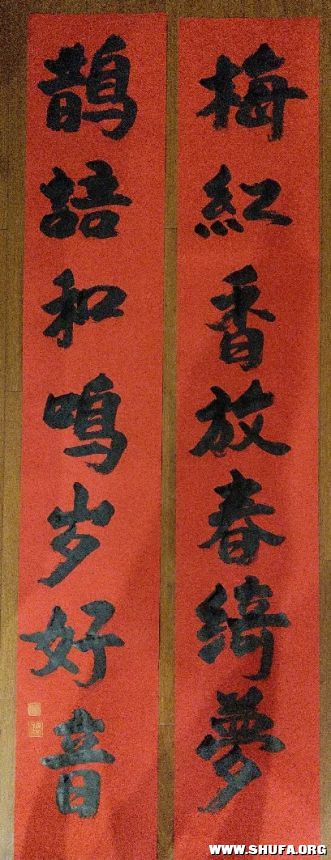 梅紅香放春绮夢
鹊語和鳴岁好音
WWW.SHUFA.ORG